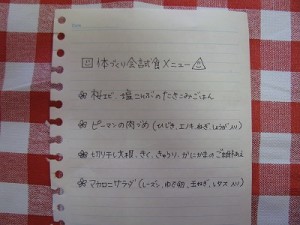 体づくり会試食メニュー
❀ 桜エビ 塩こんぶのたきこみごはん
❀ ピーマンの肉づめ(ひじき、エノキ、ねぎ、しょうが入り)
❀ 切り干し大根、きく、きゅうり、かにかまのごま酢あえ
❀ マカロニサラダ(レーズン、ゆで卵、玉ねぎ、レタス入り)